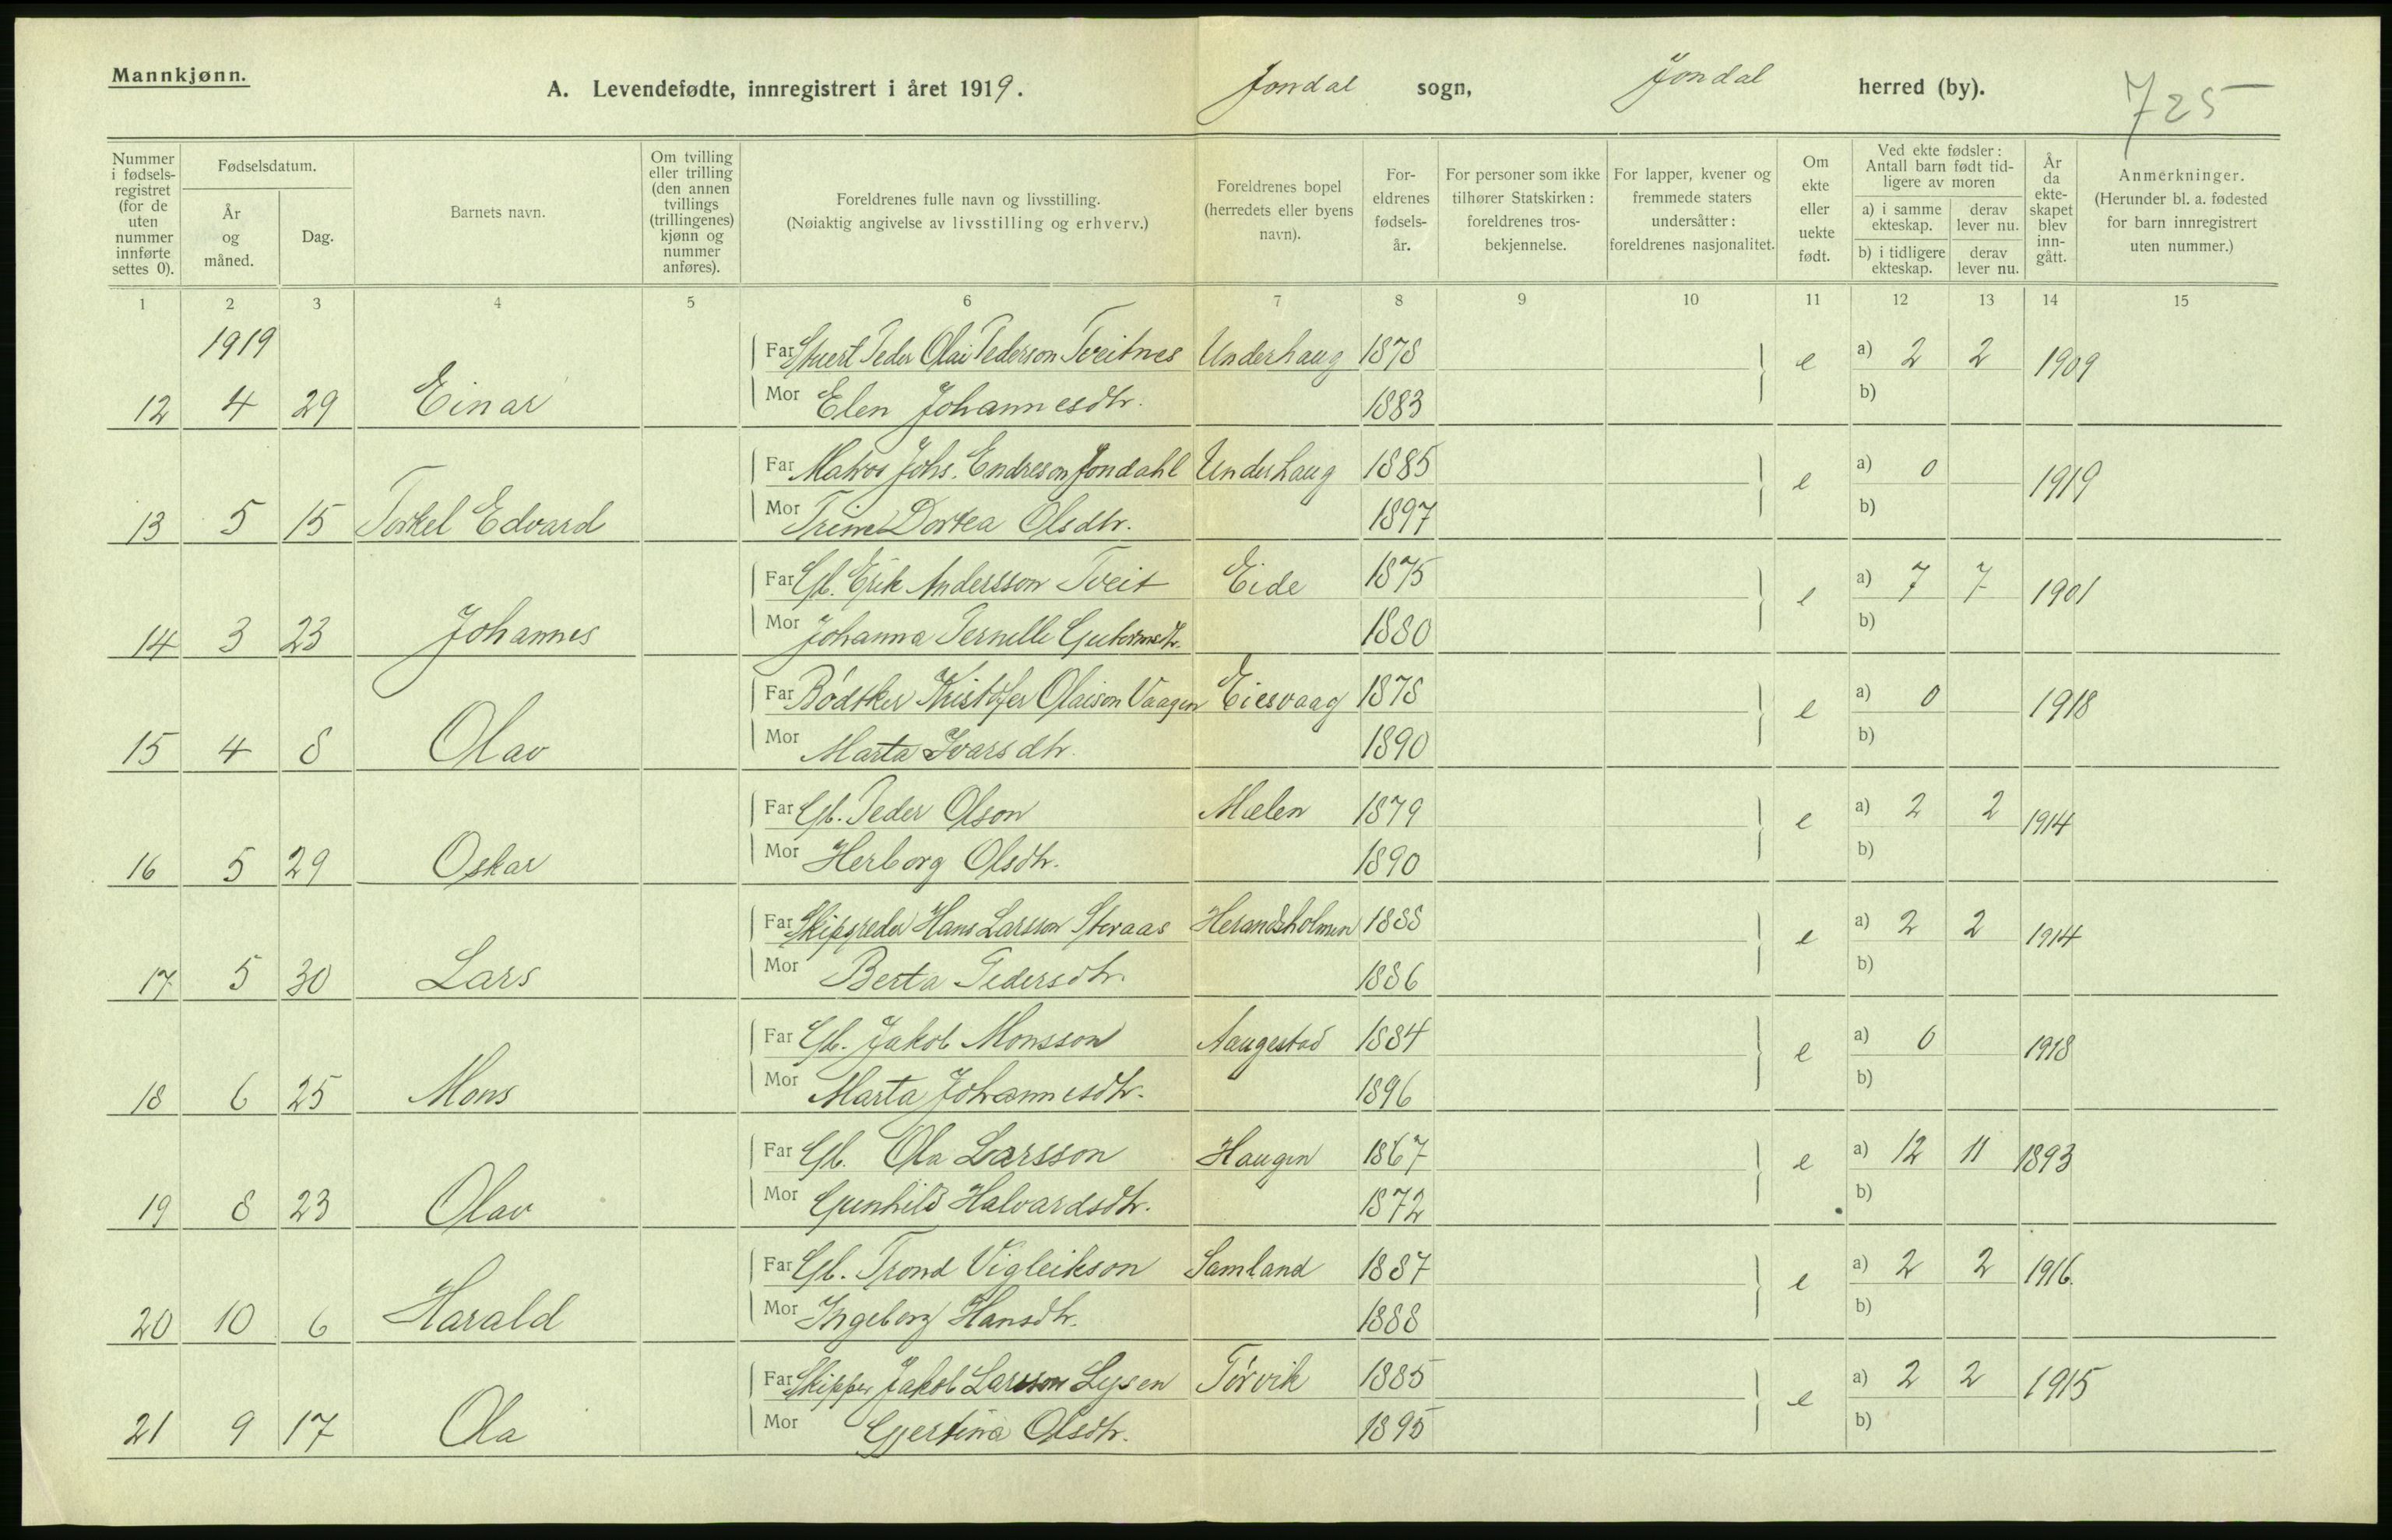 Mannkjønn.
A. Levendefødte, innregistrert i året 1919. Jondal sogn, Jondal herred (by). 725
Nummer i fødselsregistret (for de uten nummer innførte settes 0).
Fødselsdatum.
År og måned.
Dag.
Barnets navn.
Om tvilling eller trilling (den annen tvillings (trillingenes) kjønn og nummer anføres).
Foreldrenes fulle navn og livsstilling.
(Nøiaktig angivelse av livsstilling og erhverv.)
Foreldrenes bopel (herredets eller byens navn).
Foreldrenes fødselsår.
For personer som ikke tilhører Statskirken: foreldrenes trosbekjennelse.
For lapper, kvener og fremmede staters undersåtter: foreldrenes nasjonalitet.
Om ekte eller uekte født.
Ved ekte fødsler: Antall barn født tidligere av moren
a) i samme ekteskap. derav lever nu.
b) i tidligere ekteskap. derav lever nu.
År da ekteskapet blev inngått.
Anmerkninger.
(Herunder bl. a. fødested for barn innregistrert uten nummer.)
1 2 3 4 5 6 7 8 9 10 11 12 13 14 15
1919
Far Stuert Peder Olai Pederson Tveitnes Underhaug 1878 e a) 2 2 1909
12 4 29 Einar Mor Elen Johannesdtr. 1883 b)
Far Matros Johs. Endreson Jondahl Underhaug 1885 e a) 0 1919
13 5 15 Torkel Edvard Mor Trine Dortea Olsdtr. 1897 b)
Far Gb. Erik Andersson Tveit Eide 1875 e a) 7 7 1901
14 3 23 Johannes Mor Johanna Pernelle Guttormsdtr. 1880 b)
Far Bødtker Kristofer Olaison Vaagen Eiesvaag 1878 e a) 0 1918
15 4 8 Olav Mor Marta Ivarsdtr. 1890 b)
Far Gb. Peder Olson Mælen 1879 e a) 2 2 1914
16 5 29 Oskar Mor Herborg Olsdtr. 1890 b)
Far Skipsreder Hans Larsson Storaas Herandsholmen 1888 e a) 2 2 1914
17 5 30 Lars Mor Berta Pedersdtr. 1886 b)
Far Gb. Jakob Monsson Aaugestad 1884 e a) 0 1918
18 6 25 Mons Mor Marta Johannesdtr. 1896 b)
Far Gb. Ola Larsson Haugen 1867 e a) 12 11 1893
19 8 23 Olav Mor Gunhild Halvardsdtr. 1872 b)
Far Gb. Trond Vigleikson Samland 1887 e a) 2 2 1916.
20 10 6 Harald Mor Ingeborg Hansdtr. 1888 b)
Far Skipper Jakob Larsson Lysen Tørvik 1885 e a) 2 2 1915
21 9 17 Ola Mor Gjertina Olsdtr. 1895 b)